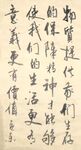 物質提供了我們生存
的保障精神才能够
使我們的生活更有
意義更有價值